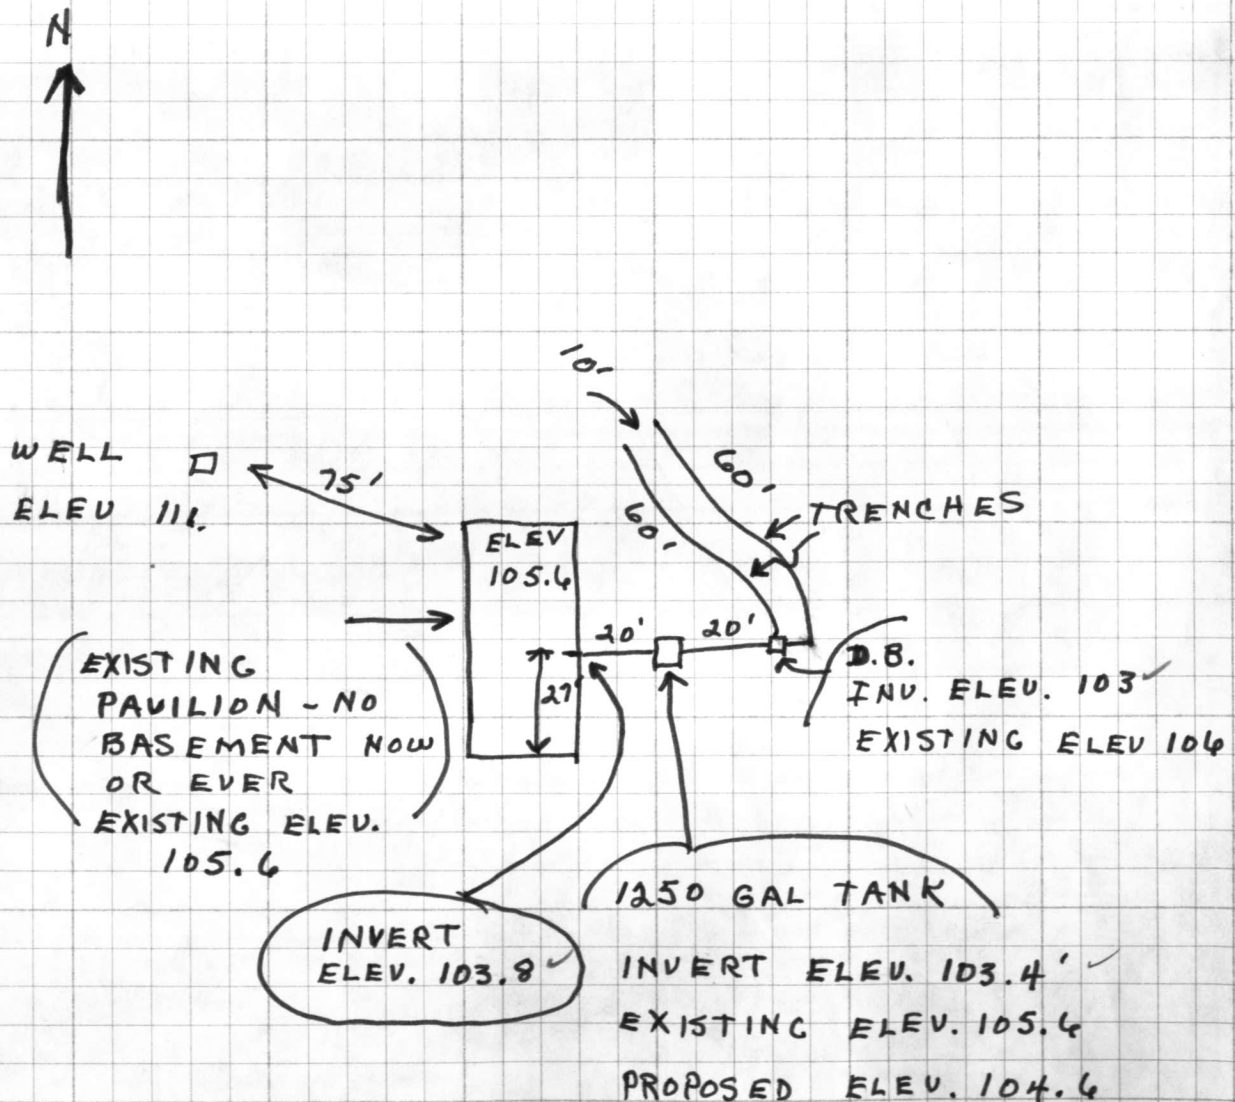 N
10'
WELL
ELEV 111.
75'
60'
60'
TRENCHES
ELEV
105.6
20'
20'
27'
D.B.
INV. ELEV. 103
EXISTING ELEV 106
EXISTING
PAVILION - NO
BASEMENT NOW
OR EVER
EXISTING ELEV.
105.6
INVERT
ELEV. 103.8
1250 GAL TANK
INVERT ELEV. 103.4'
EXISTING ELEV. 105.6
PROPOSED ELEV. 104.6